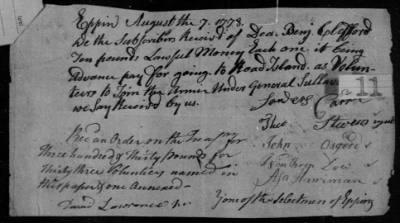 Eppin August the 7. 1778.
We the Subscribers Receivd of Dea. Benj. Clifford
Ten pounds Lawful Money Each one it being
Advance pay for going to Road Island as Volun-
teers to Join the Armee Under General Sullivan
we Say Receivd by us.
11
Rec an Order on the Treasy for
three hundred & Thirty Pounds for
Thirty three Voluntiers named in
this paper & one Annexed—
David Lawrence
Theo Stevens
John Osgood
Low
Asa
of the Selectmen of Epping